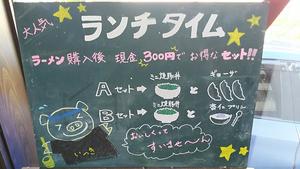 大人気
ランチタイム
ラーメン購入後 現金300円でお得なセット!!
ミニ焼豚丼 ギョーザ
Aセット→ と
ミニ焼豚丼 杏仁プリン
Bセット→ と
おいしくって
すいませ〜ん
いつき